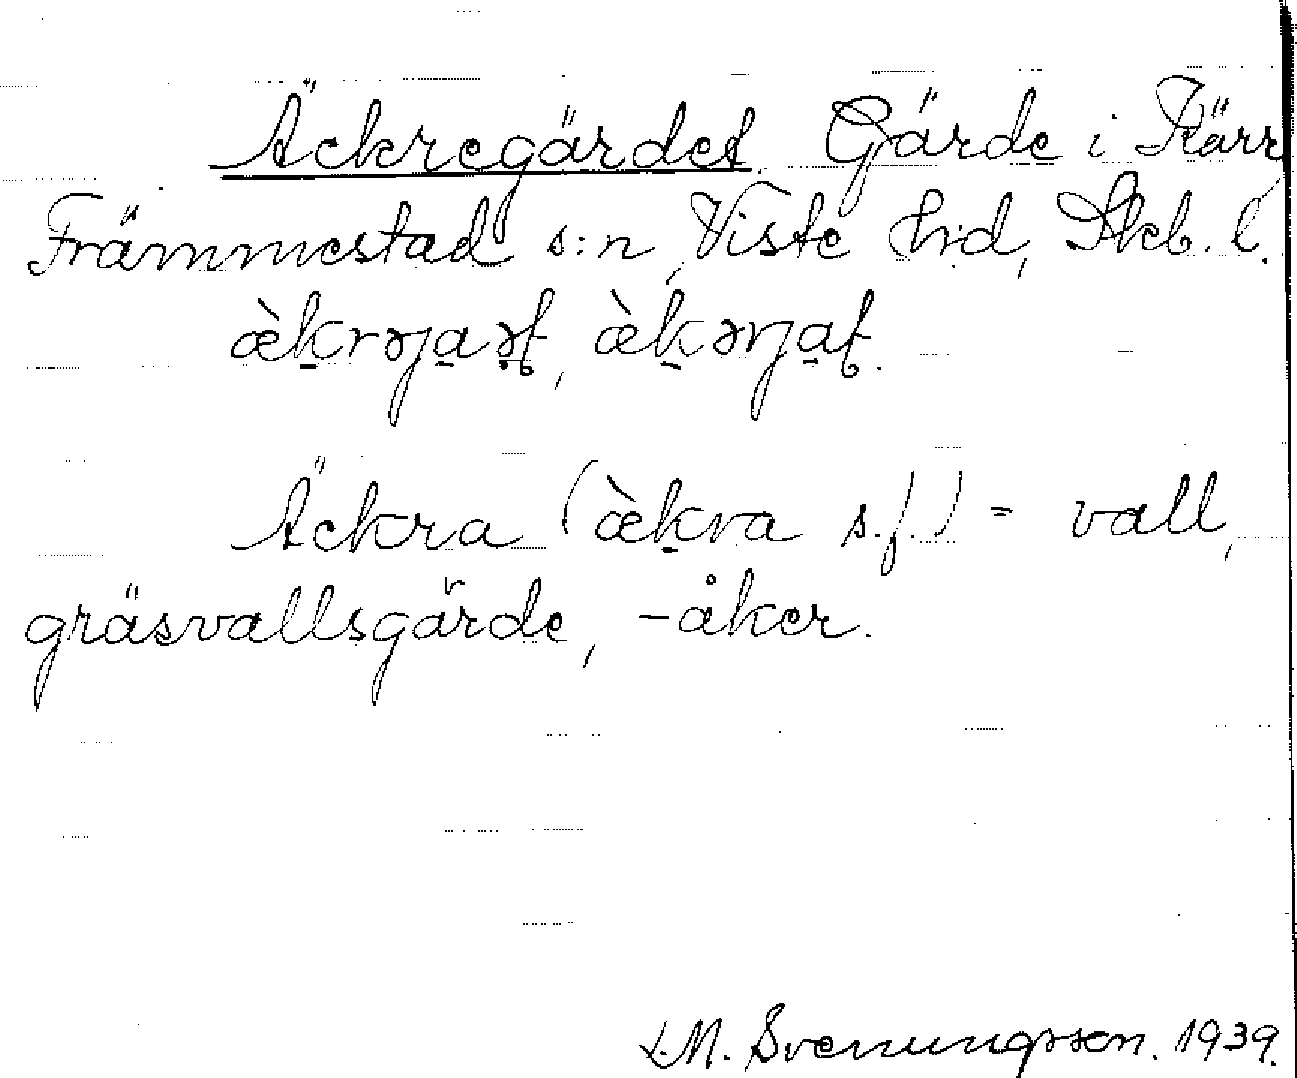 Äckregärdet. Gärde i Kärr
Främmestad s:n, Viste hrd, Skb. l.
æ̀krəja̱ət, æ̀kərja̱t.
Äckra (æ̀kra s.f.) = vall,
gräsvallsgärde, -åker.
L.M. Svenungsson. 1939.